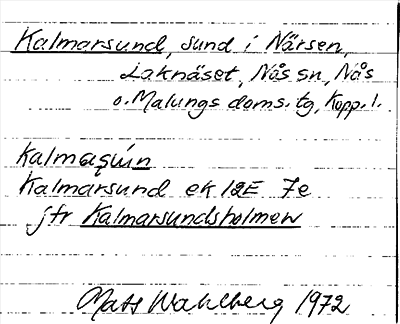 Kalmarsund, sund i Närsen,
Laknäset, Nås sn, Nås
o. Malungs doms. tg, Kopp. l.
Kalmarsund ek 12E 7e
jfr Kalmarsundsholmen
Mats Wahlberg 1972